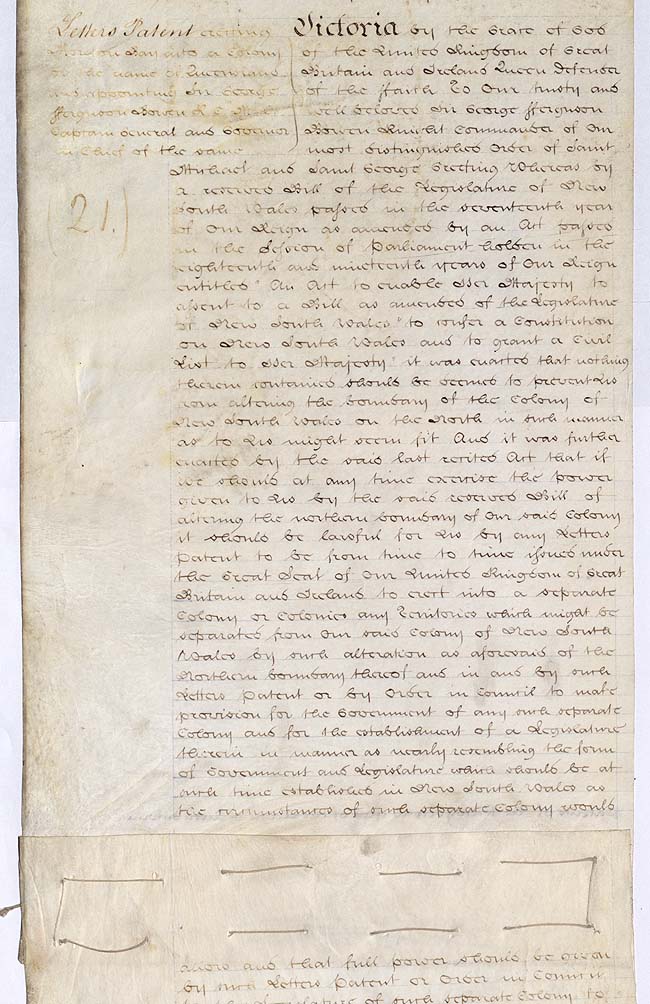 Letters Patent erecting
Moreton Bay into a Colony
under the name of Queensland
and appointing Sir George
Ffergusson Bowen K.C.M.G.
Captain General and Governor
in Chief of the same
(21.)
Victoria by the Grace of God
of the United Kingdom of Great
Britain and Ireland Queen Defender
of the Ffaith To Our trusty and
well beloved Sir George Fferguson
Bowen Knight Commander of Our
most distinguished Order of Saint
Michael and Saint George Greeting Whereas by
a reserved Bill of the Legislature of New
South Wales passed in the seventeenth year
of Our Reign as amended by an Act passed
in the Session of Parliament holden in the
eighteenth and nineteenth years of Our Reign
entitled "An Act to enable Her Majesty to
assent to a Bill as amended of the Legislature
of New South Wales "to confer a Constitution
on New South Wales and to grant a Civil
List to Her Majesty" it was enacted that nothing
therein contained should be deemed to prevent Us
from altering the boundary of the Colony of
New South Wales on the North in such manner
as to Us might seem fit And it was further
enacted by the said last recited Act that if
we should at any time exercise the power
given to Us by the said reserved Bill of
altering the northern boundary of Our said Colony
it should be lawful for Us by any Letters
Patent to be from time to time issued under
the Great Seal of Our United Kingdom of Great
Britain and Ireland to erect into a separate
Colony or Colonies any Territories which might be
separated from Our said Colony of New South
Wales by such alteration as aforesaid of the
Northern boundary thereof and in and by such
Letters Patent or by Order in Council to make
provision for the Government of any such separate
Colony and for the establishment of a Legislature
therein in manner as nearly resembling the form
of Government and Legislature which should be at
such time established in New South Wales as
the circumstances of such separate Colony would
allow and that full power should be given
by such Letters Patent or Order in Council
to the Legislature of such separate Colony to